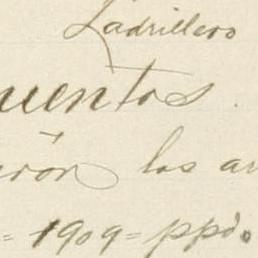 Ladrillero
uentos.
rón los ar
= 1909 = ppdo.